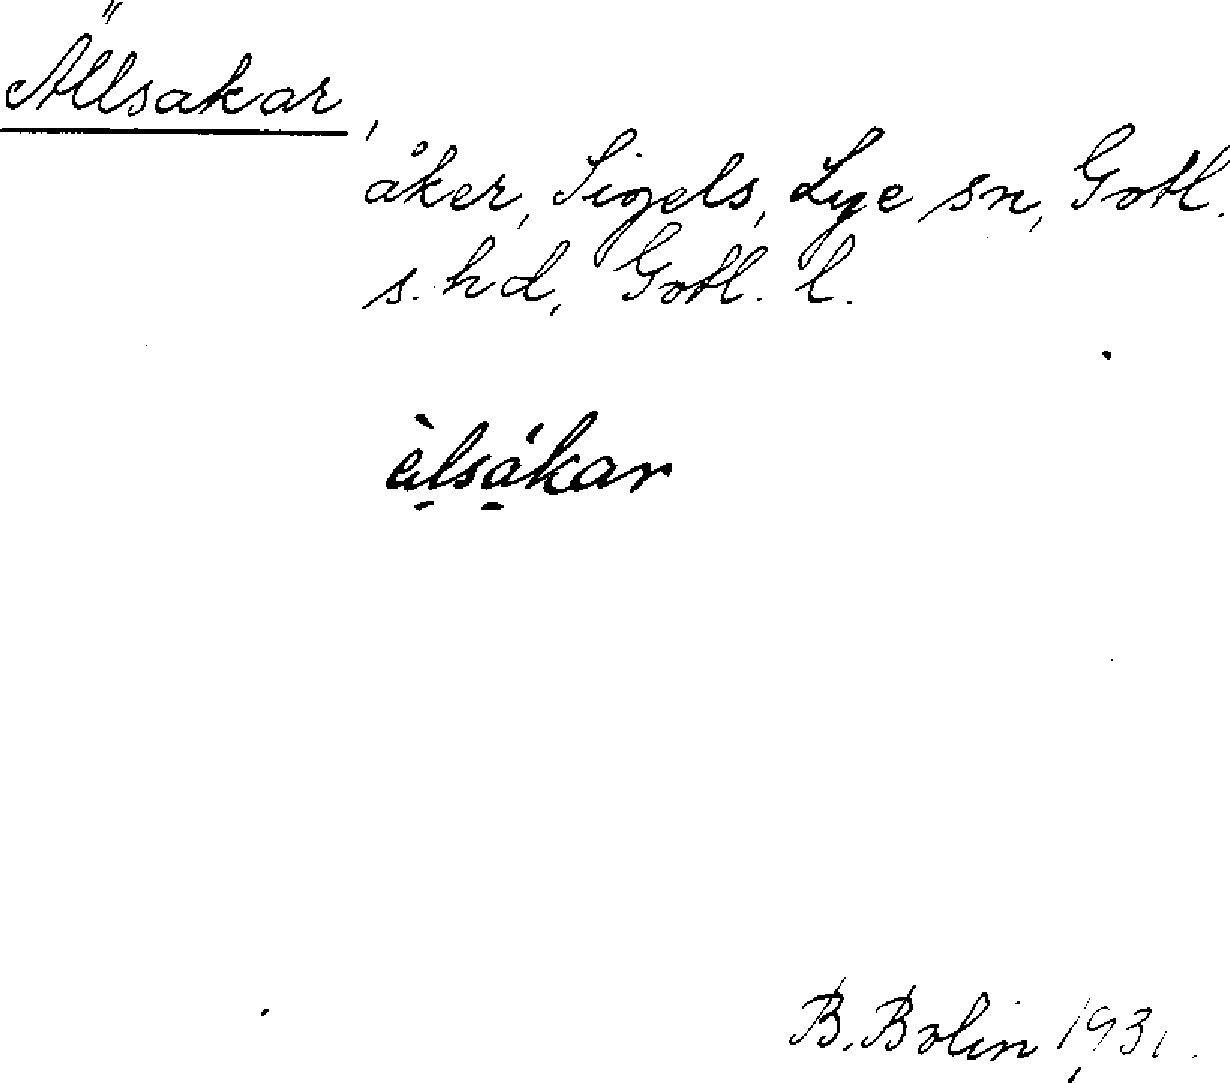 Ällsakar,
åker, Sigels, Lye sn, Gotl.
s. hd, Gotl. l.
ȧ̀lsákar
B. Bolin 1931.